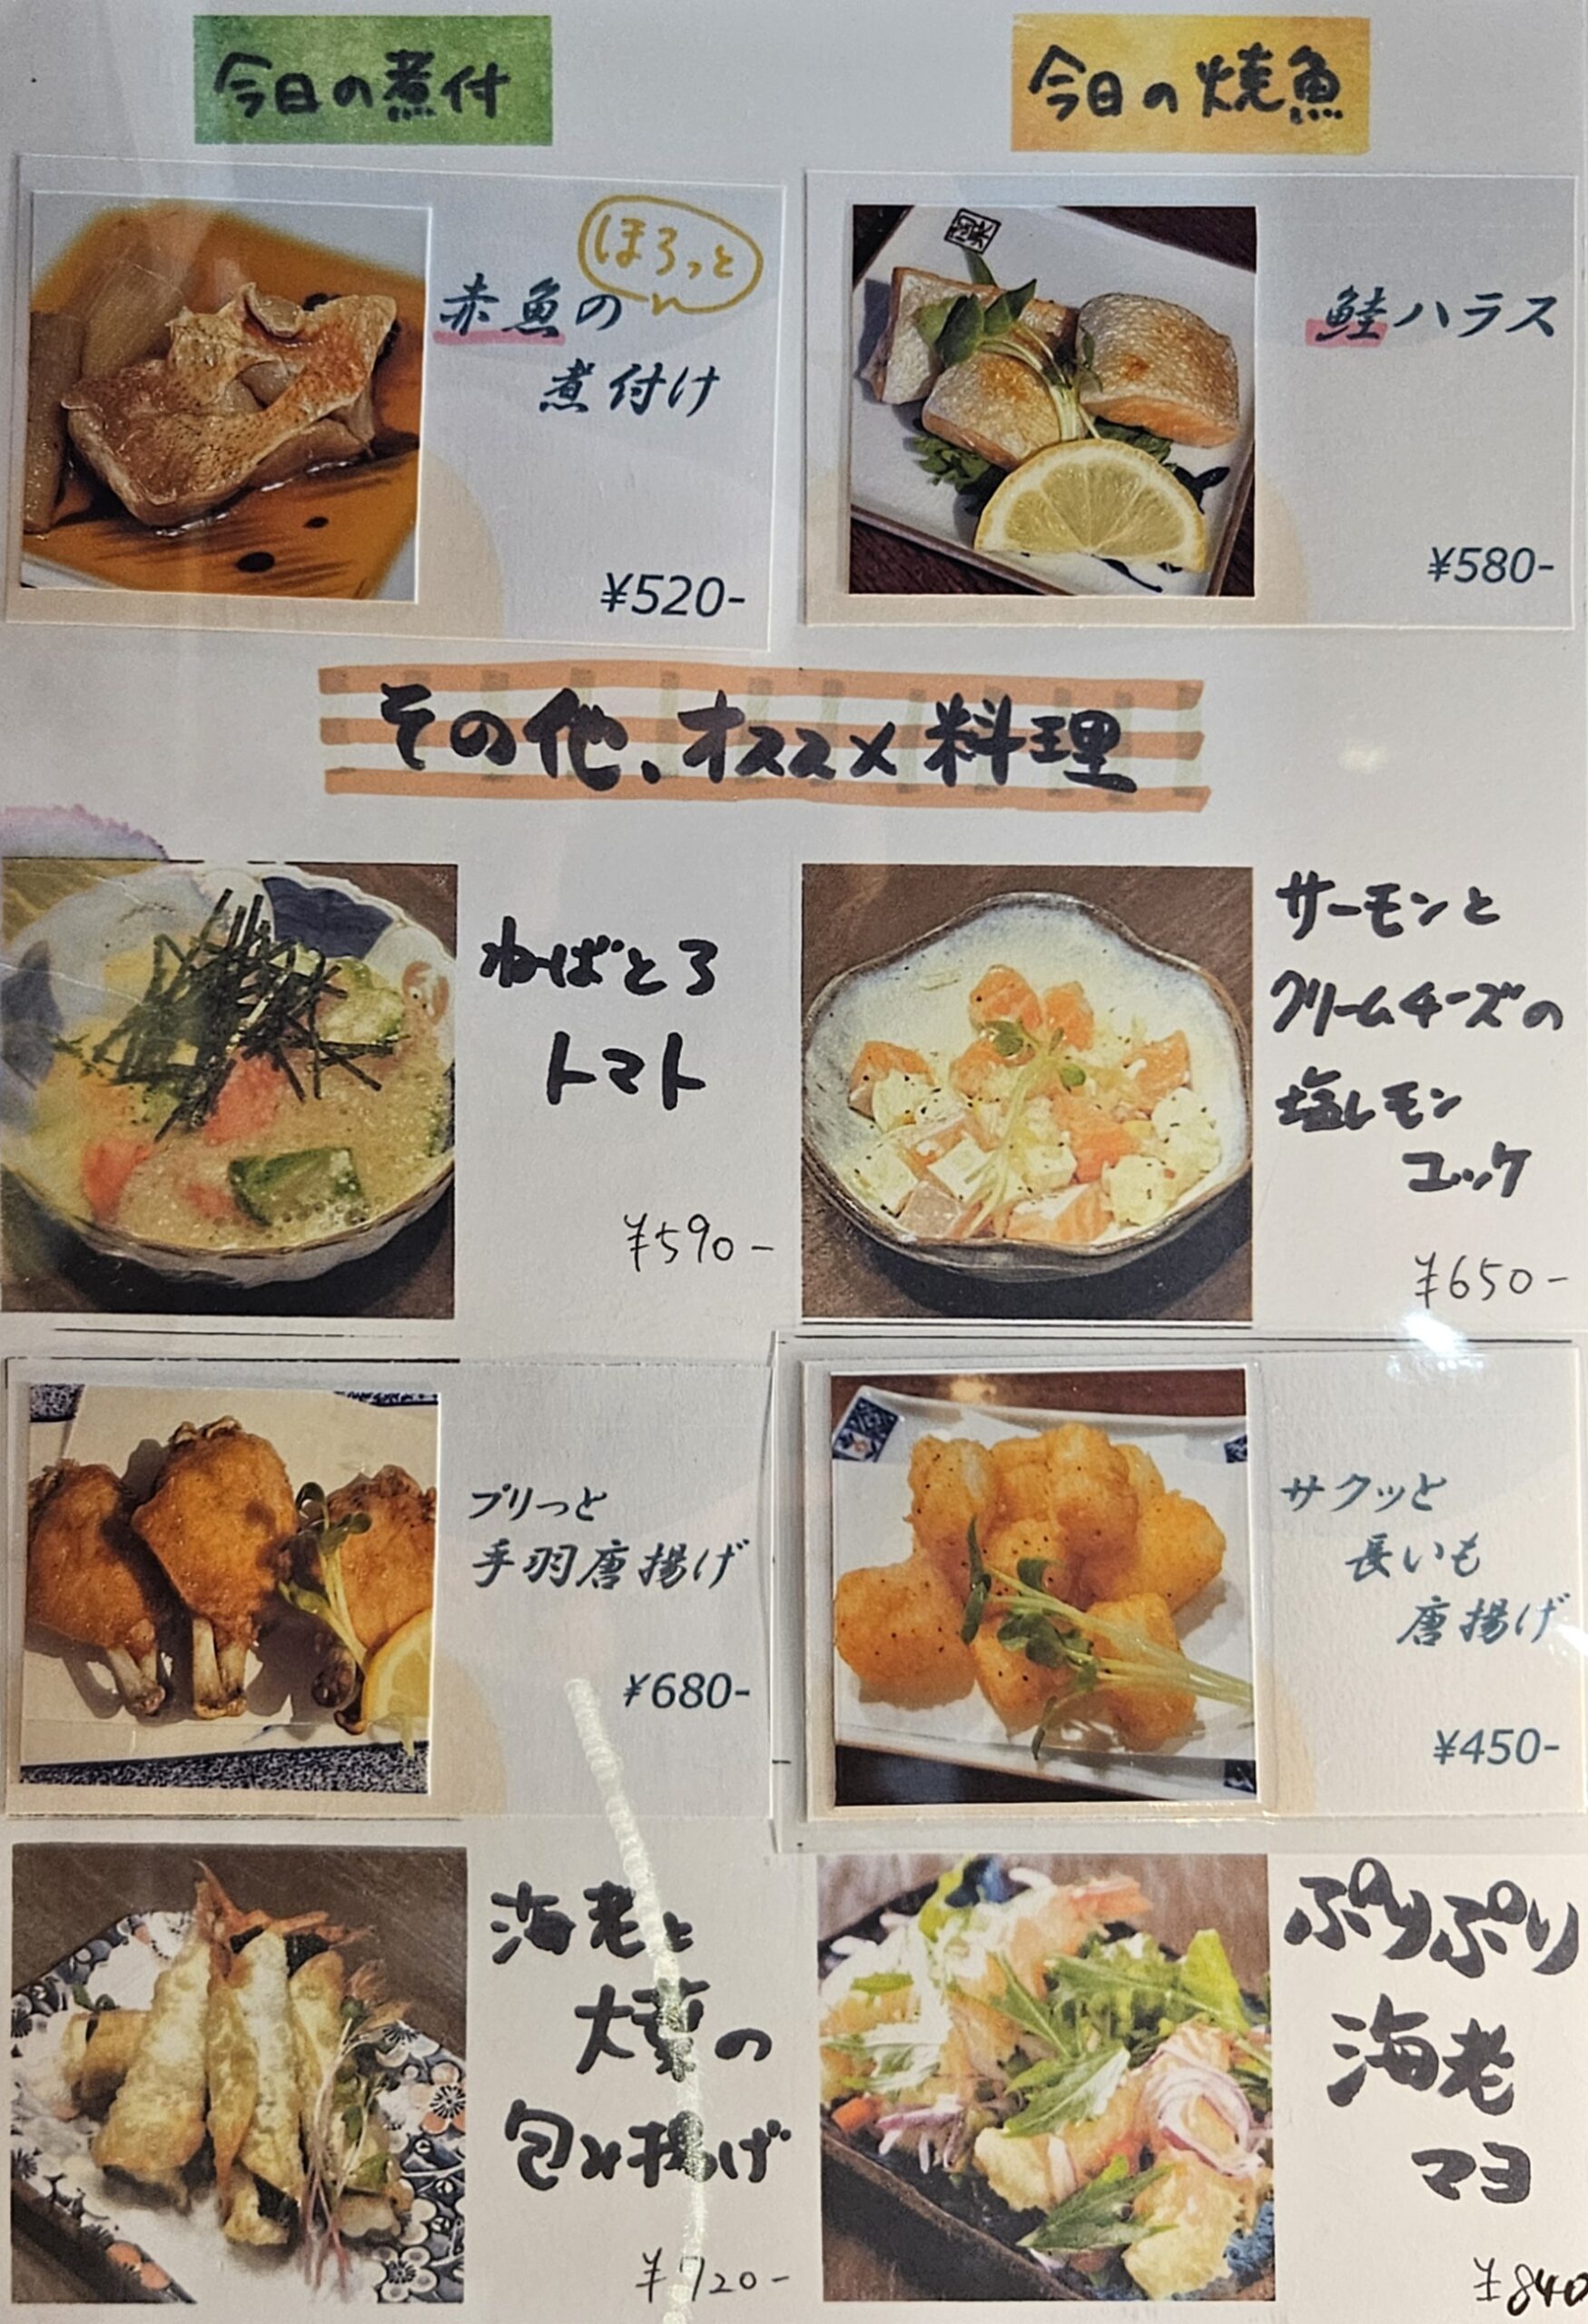 今日の煮付
今日の焼魚
ほろっと
赤魚の
煮付け
¥520-
鮭ハラス
¥580-
その他、オススメ料理
ねばとろ
トマト
¥590-
サーモンと
クリームチーズの
塩レモン
ユッケ
¥650-
プリっと
手羽唐揚げ
¥680-
サクッと
長いも
唐揚げ
¥450-
海老と
大葉の
包み揚げ
¥720-
ぷりぷり
海老
マヨ
¥840